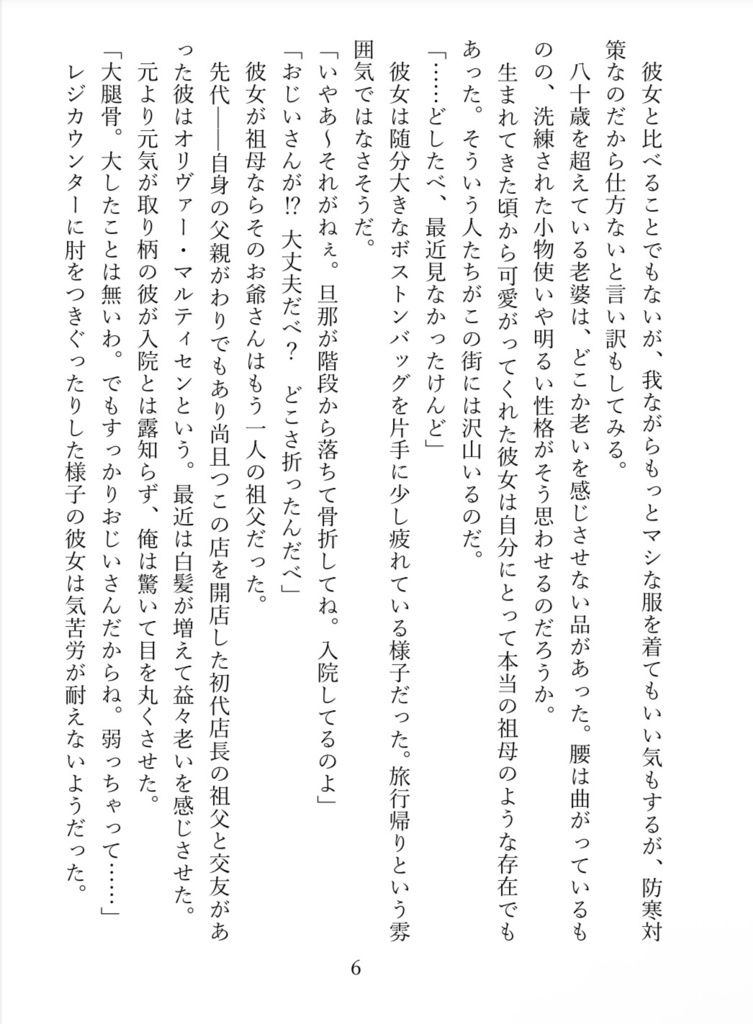 彼女と比べることでもないが、我ながらもっとマシな服を着てもいい気もするが、防寒対
策なのだから仕方ないと言い訳もしてみる。
八十歳を超えている老婆は、どこか老いを感じさせない品があった。腰は曲がっているも
のの、洗練された小物使いや明るい性格がそう思わせるのだろうか。
生まれてきた頃から可愛がってくれた彼女は自分にとって本当の祖母のような存在でも
あった。そういう人たちがこの街には沢山いるのだ。
「……どしたべ、最近見なかったけんど」
彼女は随分大きなボストンバッグを片手に少し疲れている様子だった。旅行帰りという雰
囲気ではなさそうだ。
「いやあ〜それがねぇ。旦那が階段から落ちて骨折してね。入院してるのよ」
「おじいさんが!? 大丈夫だべ？　どこさ折ったんだべ」
彼女が祖母ならそのお爺さんはもう一人の祖父だった。
先代――自身の父親がわりでもあり尚且つこの店を開店した初代店長の祖父と交友があ
った彼はオリヴァー・マルティセンという。最近は白髪が増えて益々老いを感じさせた。
元より元気が取り柄の彼が入院とは露知らず、俺は驚いて目を丸くさせた。
「大腿骨。大したことは無いわ。でもすっかりおじいさんだからね。弱っちゃって……」
レジカウンターに肘をつきぐったりした様子の彼女は気苦労が耐えないようだった。
6